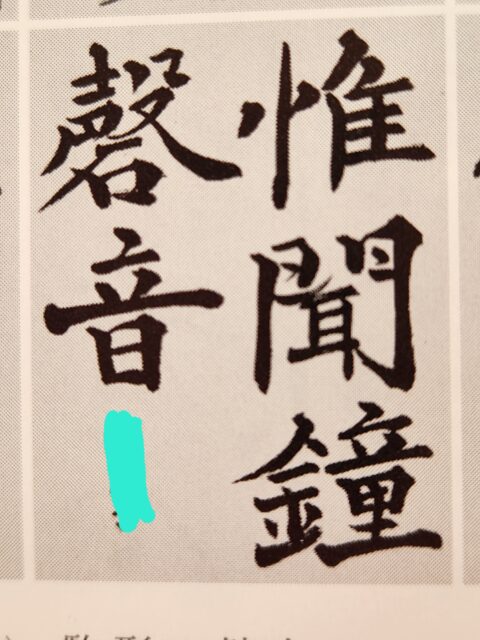 惟聞鐘
磬音